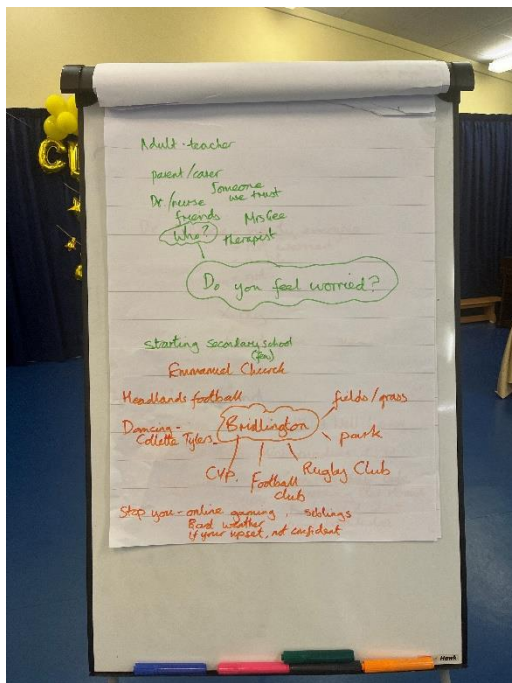 Adult - teacher
parent/carer
Someone
we trust
Dr./nurse
friends
Mrs Gee
Who?
therapist
Do you feel worried?
starting secondary school
Emmanuel Church
Headlands football
fields/grass
Dancing -
Colletta Tylers
Bridlington
park
CYP.
Football
club
Rugby Club
Stop you - online gaming, siblings
Bad weather
if your upset, not confident